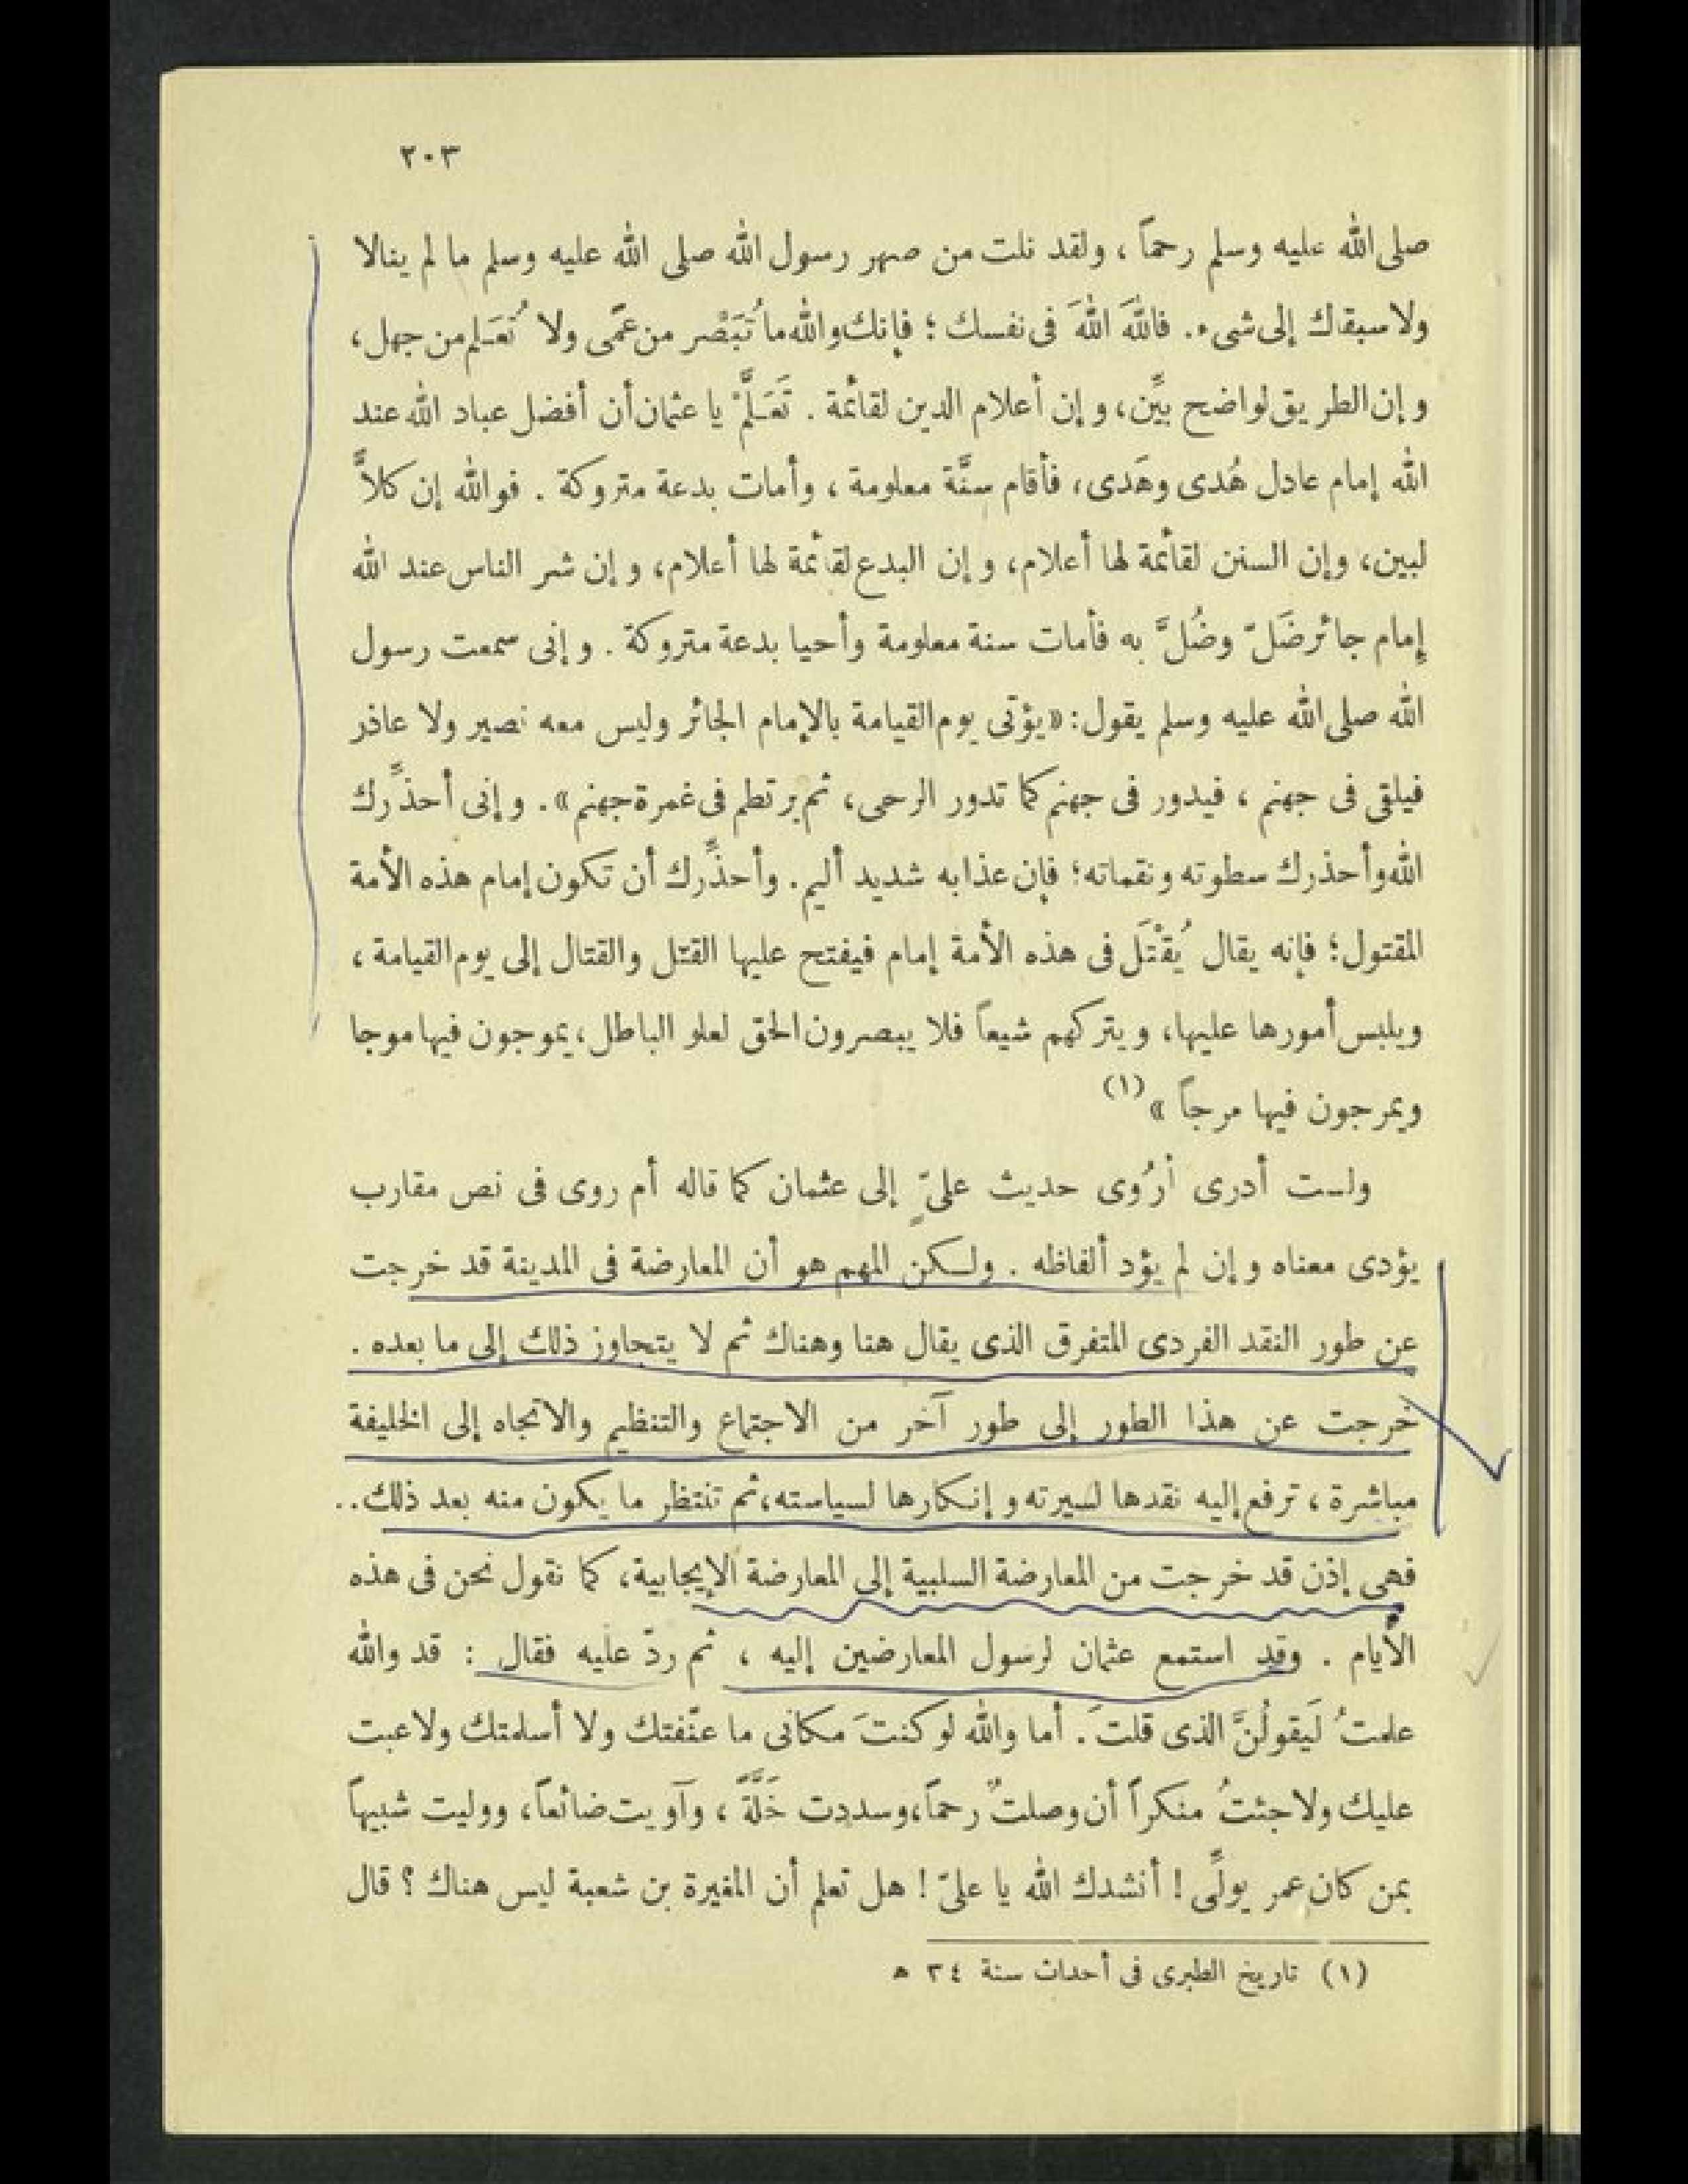 ٢٠٣
صلى الله عليه وسلم رحماً ، ولقد نلت من صهر رسول الله صلى الله عليه وسلم ما لم ينالا
ولا سبقاك إلى شىء. فاللهَ اللهَ فى نفسك ؛ فإنك والله ما تُبَصْر من عمًى ولا تُعَـلم من جهل،
وإن الطريق لواضح بيِّن، وإن أعلام الدين لقائمة . تَعَـلَّمْ يا عثمان أن أفضل عباد الله عند
الله إمام عادل هُدى وهَدى، فأقام سنَّة معلومة ، وأمات بدعة متروكة . فوالله إن كلاًّ
لبين، وإن السنن لقائمة لها أعلام، وإن البدع لقائمة لها أعلام، وإن شر الناس عند الله
إمام جائر ضَلّ وضُلَّ به فأمات سنة معلومة وأحيا بدعة متروكة . وإنى سمعت رسول
الله صلى الله عليه وسلم يقول: «يؤتى يوم القيامة بالإمام الجائر وليس معه نصير ولا عاذر
فيلقى فى جهنم ، فيدور فى جهنم كما تدور الرحى، ثم يرتطم فى غمرة جهنم» . وإنى أحذِّرك
الله وأحذرك سطوته ونقماته؛ فإن عذابه شديد أليم. وأحذِّرك أن تكون إمام هذه الأمة
المقتول؛ فإنه يقال يُقْتَل فى هذه الأمة إمام فيفتح عليها القتل والقتال إلى يوم القيامة ،
ويلبس أمورها عليها، ويتركهم شيعاً فلا يبصرون الحق لعلو الباطل، يموجون فيها موجا
ويمرجون فيها مرجاً » (١)
ولست أدرى أرُوى حديث علىّ إلى عثمان كما قاله أم روى فى نص مقارب
يؤدى معناه وإن لم يؤد ألفاظه . ولـكن المهم هو أن المعارضة فى المدينة قد خرجت
عن طور النقد الفردى المتفرق الذى يقال هنا وهناك ثم لا يتجاوز ذلك إلى ما بعده .
خرجت عن هذا الطور إلى طور آخر من الاجتماع والتنظيم والاتجاه إلى الخليفة
مباشرة ، ترفع إليه نقدها لسيرته وإنـكارها لسياسته، ثم تنتظر ما يكون منه بعد ذلك..
فهى إذن قد خرجت من المعارضة السلبية إلى المعارضة الإيجابية، كما نقول نحن فى هذه
الأيام . وقد استمع عثمان لرسول المعارضين إليه ، ثم ردّ عليه فقال : قد والله
علمتُ لَيقولُنَّ الذى قلتَ . أما والله لو كنتَ مكانى ما عنّفتك ولا أسلمتك ولا عبت
عليك ولا جئتُ منكراً أن وصلتُ رحماً، وسددت خَلَّةً ، وآويت ضائعاً، ووليت شبيهاً
بمن كان عمر يولِّى ! أنشدك الله يا علىّ ! هل تعلم أن المغيرة بن شعبة ليس هناك ؟ قال
(١) تاريخ الطبرى فى أحداث سنة ٣٤ هـ